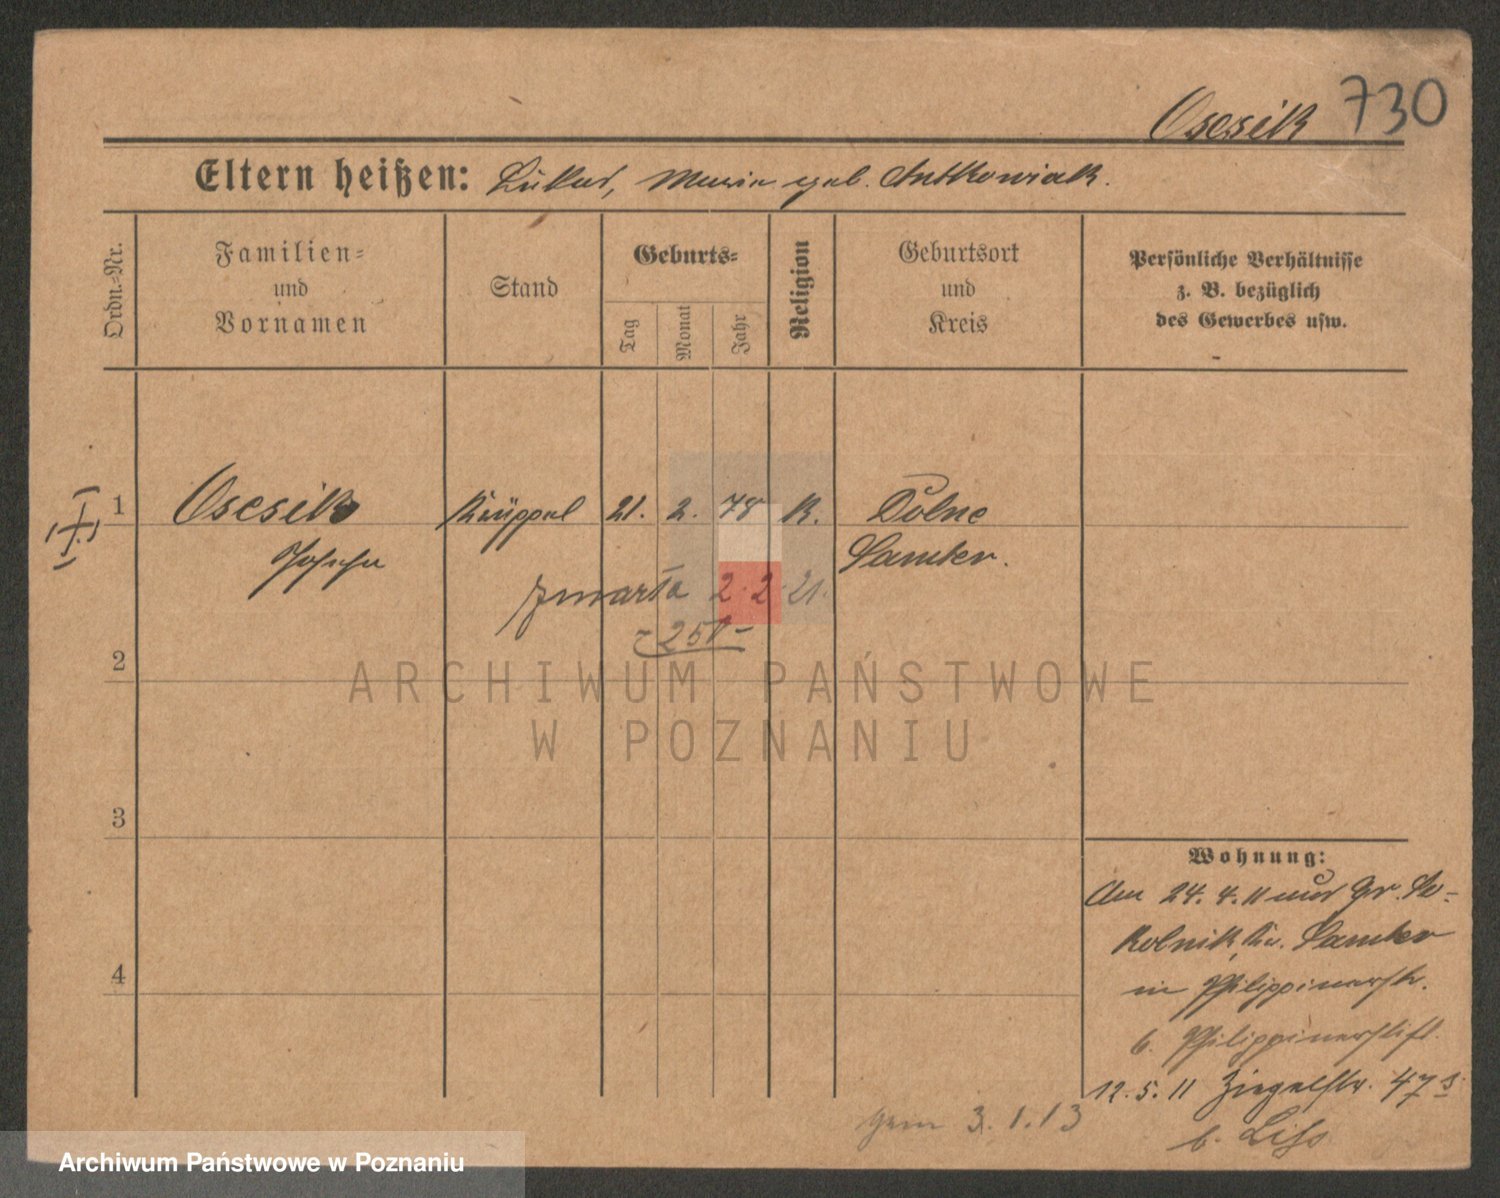 730
Osesik
Eltern heißen: Lukas, Marie geb. Antkowiak.
Ordn.=Nr.
Familien= und Vornamen
Stand
Geburts=
Tag
Monat
Jahr
Religion
Geburtsort und Kreis
Persönliche Verhältnisse
z. B. bezüglich
des Gewerbes usw.
1 Osesik 21. 2. 78 k. Dolne
Samter.
zmarła 2.2.21.
2
ARCHIWUM PAŃSTWOWE
W POZNANIU
3
4
Wohnung:
Am 24.4.11 aus Gr. So=
kolnik, Kr. Samter
in Philippinerstr.
b. Philippinerstift.
12.5.11 Ziegelstr. 47
b. Liss
3.1.13
Archiwum Państwowe w Poznaniu